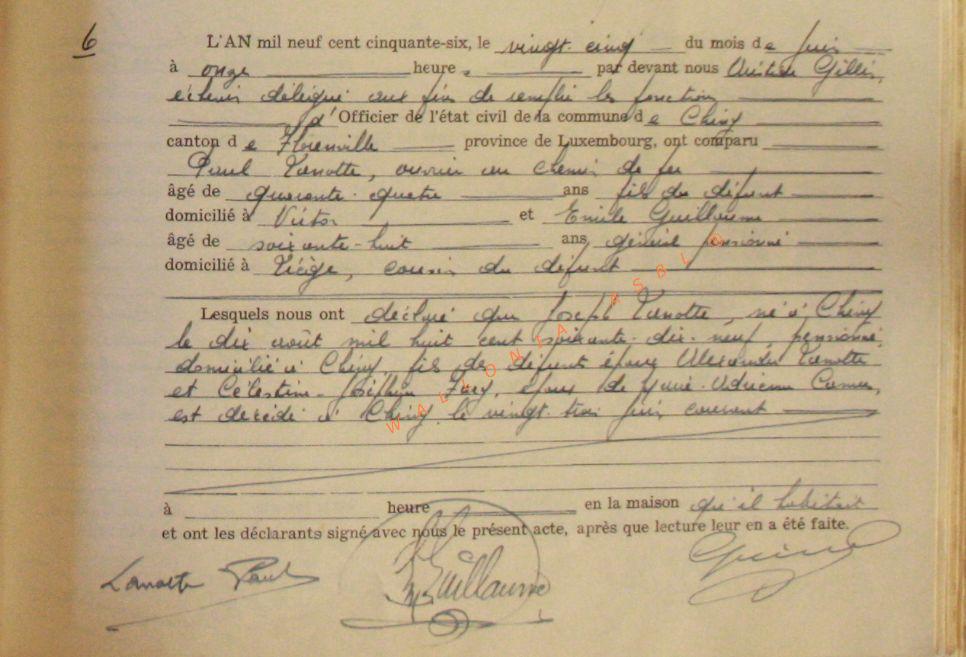 6
L'AN mil neuf cent cinquante-six, le vingt-cinq du mois de juin
à onze heures par devant nous Aristide Gillis,
échevin délégué aux fins de remplir les fonctions
d'Officier de l'état civil de la commune de Chiny
canton de Florenville province de Luxembourg, ont comparu
Paul Lanotte, ouvrier au chemin de fer
âgé de quarante-quatre ans fils du défunt
domicilié à Virton et Emile Guillaume
âgé de soixante-huit ans, général pensionné
domicilié à Liège, cousin du défunt
Lesquels nous ont déclaré que Joseph Lanotte, né à Chiny
le dix août mil huit cent soixante-dix-neuf, pensionné,
domicilié à Chiny, fils de défunts époux Alexandre Lanotte
et Célestine-Joséphine, époux de Marie-Adrienne,
est décédé à Chiny le vingt-trois juin courant
à heure en la maison qu'il habitait
et ont les déclarants signé avec nous le présent acte, après que lecture leur en a été faite.
Lanotte Paul Guillaume
WALLONIA ASBL